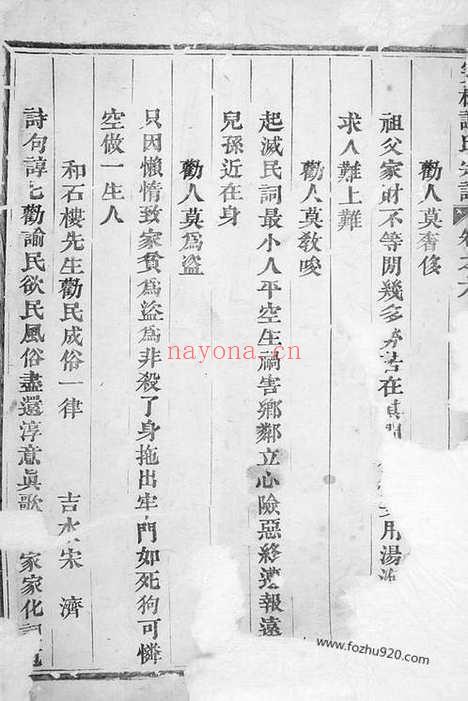 勸人莫奢侈
祖父家財不等閒幾多勞苦在其間用湯
求人難上難
勸人莫教唆
起滅民詞最小人平空生禍害鄉鄰立心險惡終遭報遠
兒孫近在身
勸人莫為盜
只因懶惰致家貧為盜為非殺了身拖出牢門如死狗可憐
空做一生人
和石樓先生勸民成俗一律
吉水宋濟
詩句諄諄勸諭民欲民風俗盡還淳意真歌家家化
nayona.cn
www.fozhu920.com